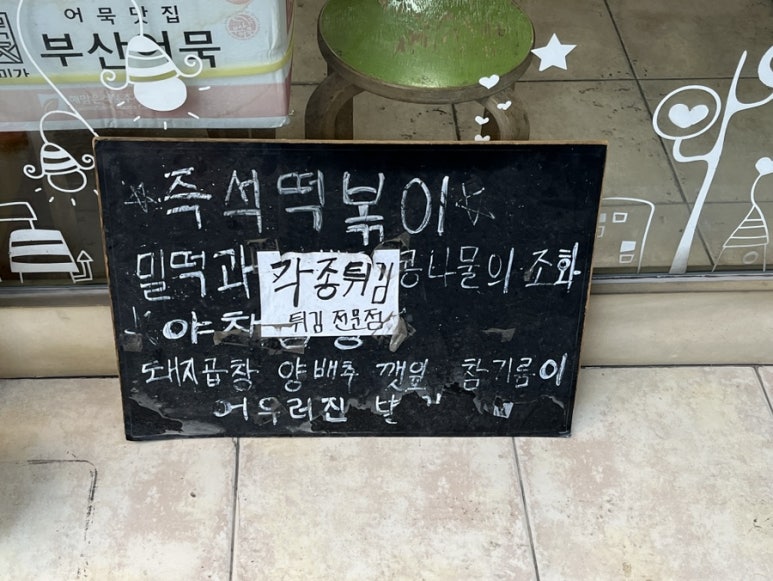 어묵맛집
부산어묵
즉석떡볶이
밀떡과 콩나물의 조화
각종튀김
튀김 전문점
야채
돼지곱창 양배추 깻잎 참기름이
어우러진